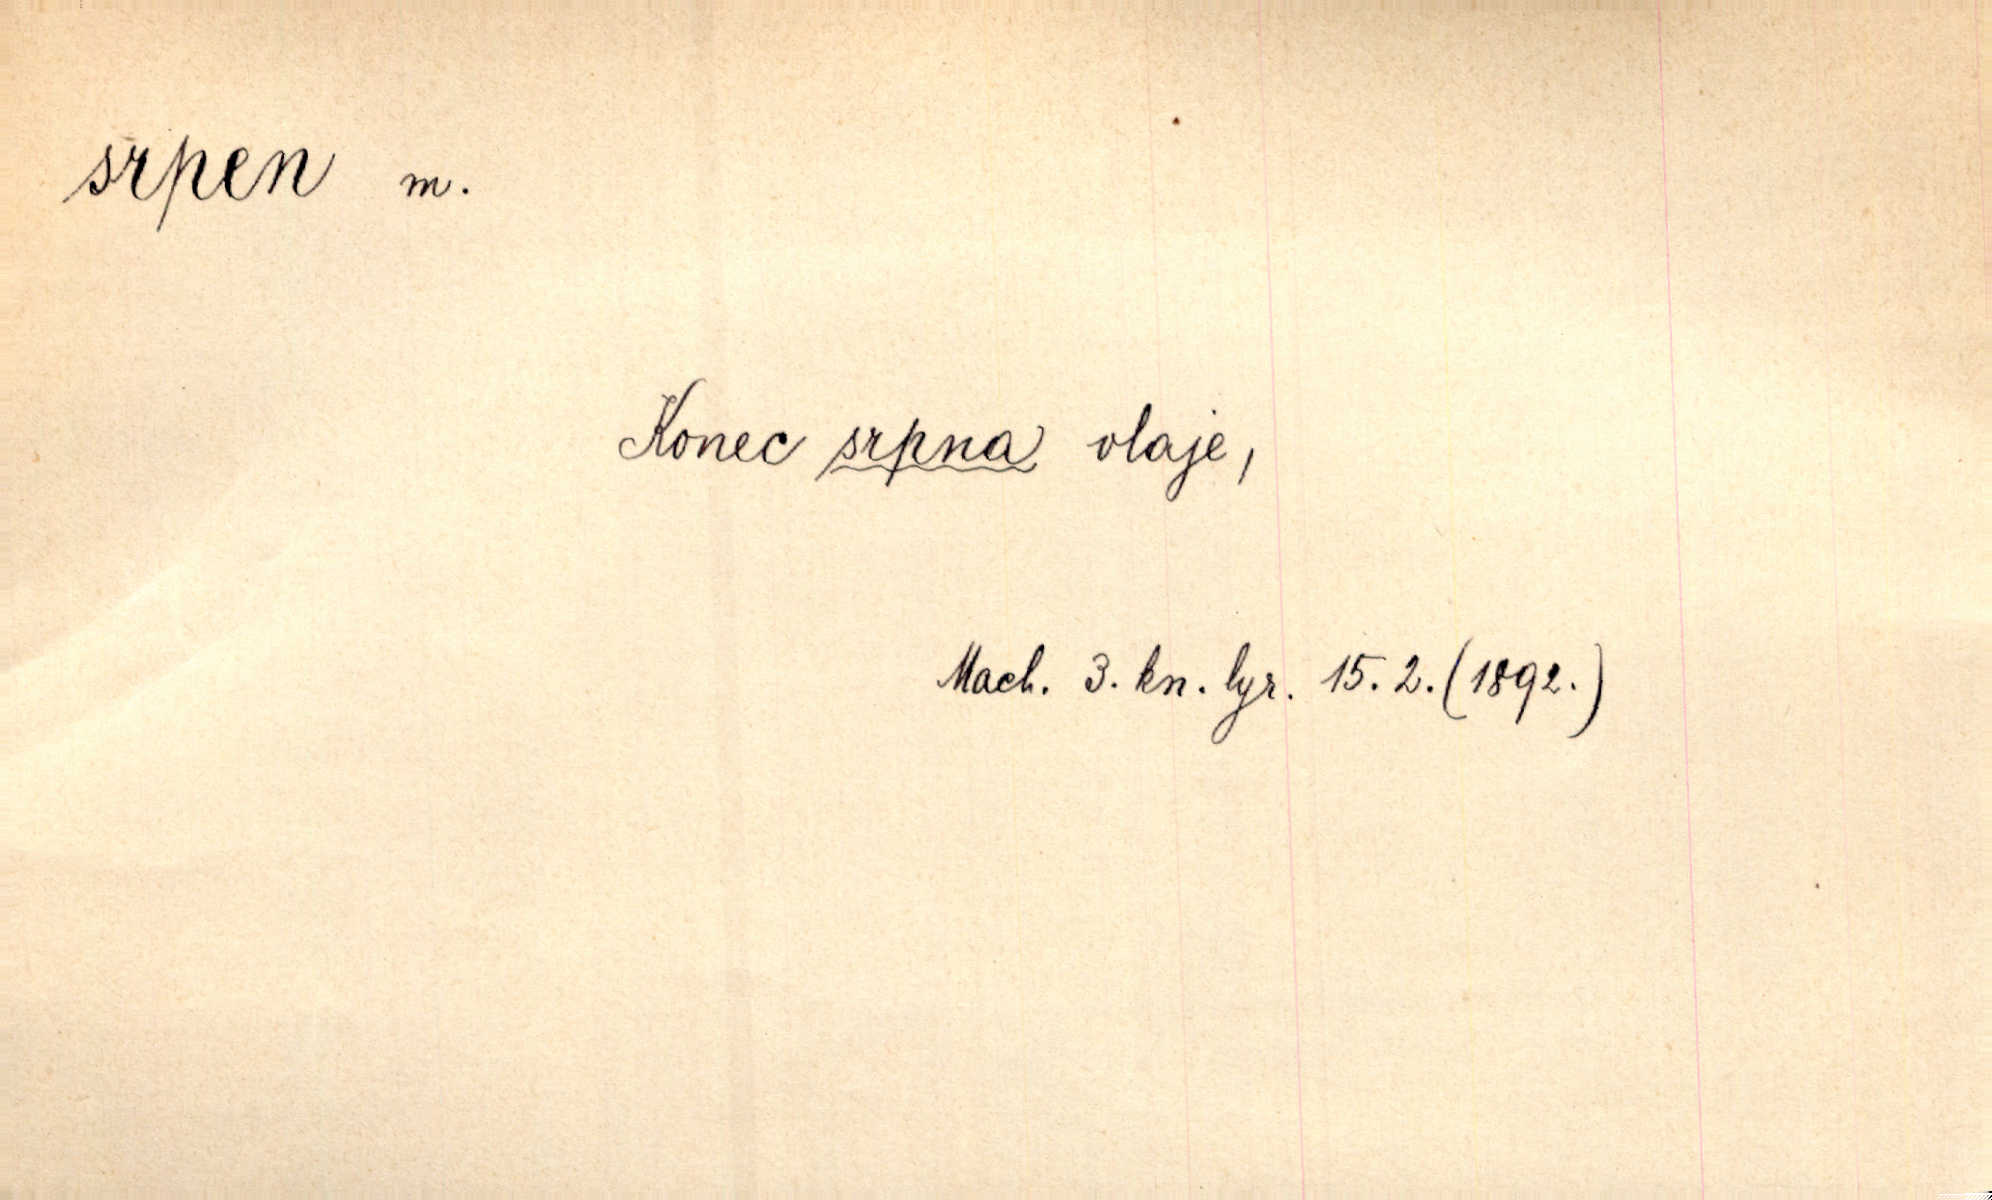 srpen m.
Konec srpna vlaje,
Mach. 3. kn. lyr. 15. 2. (1892.)